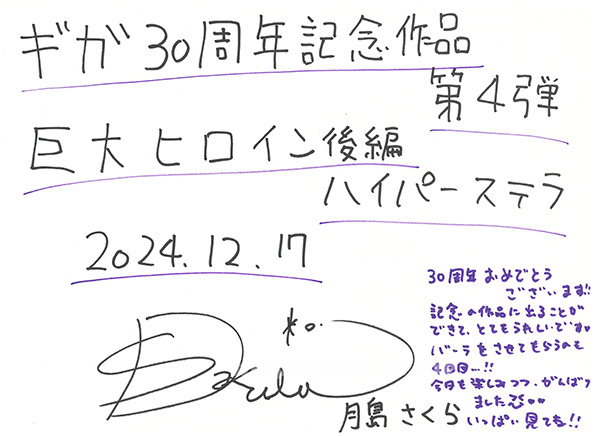 ギガ30周年記念作品
第4弾
巨大ヒロイン後編
ハイパーステラ
2024.12.17
30周年おめでとう
ございます!!
記念の作品に出ることが
できて、とてもうれしいです。
バーラをさせてもらうのも
4回目…!!
今日も楽しみつつ、がんばり
ました
いっぱい見てね!!
Sakura
月島さくら